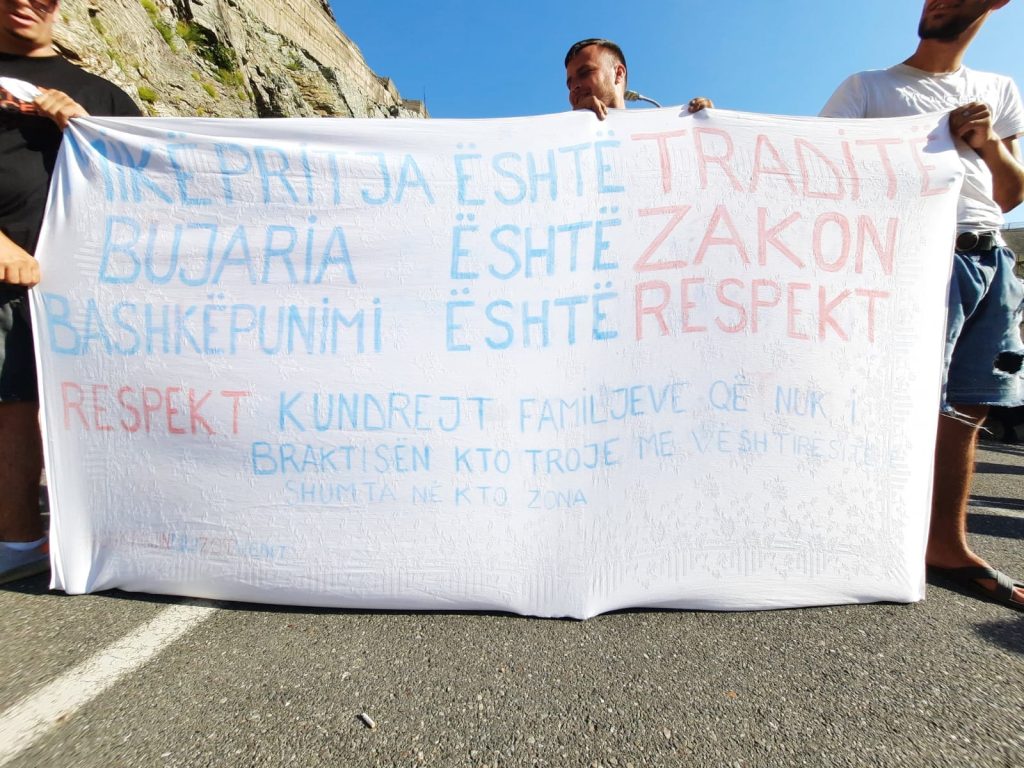 MIKËPRITJA ËSHTË TRADITË
BUJARIA ËSHTË ZAKON
BASHKËPUNIMI ËSHTË RESPEKT
RESPEKT KUNDREJT FAMILJEVE QË NUK I
BRAKTISËN KTO TROJE ME VËSHTIRËSITË E
SHUMTA NË KTO ZONA